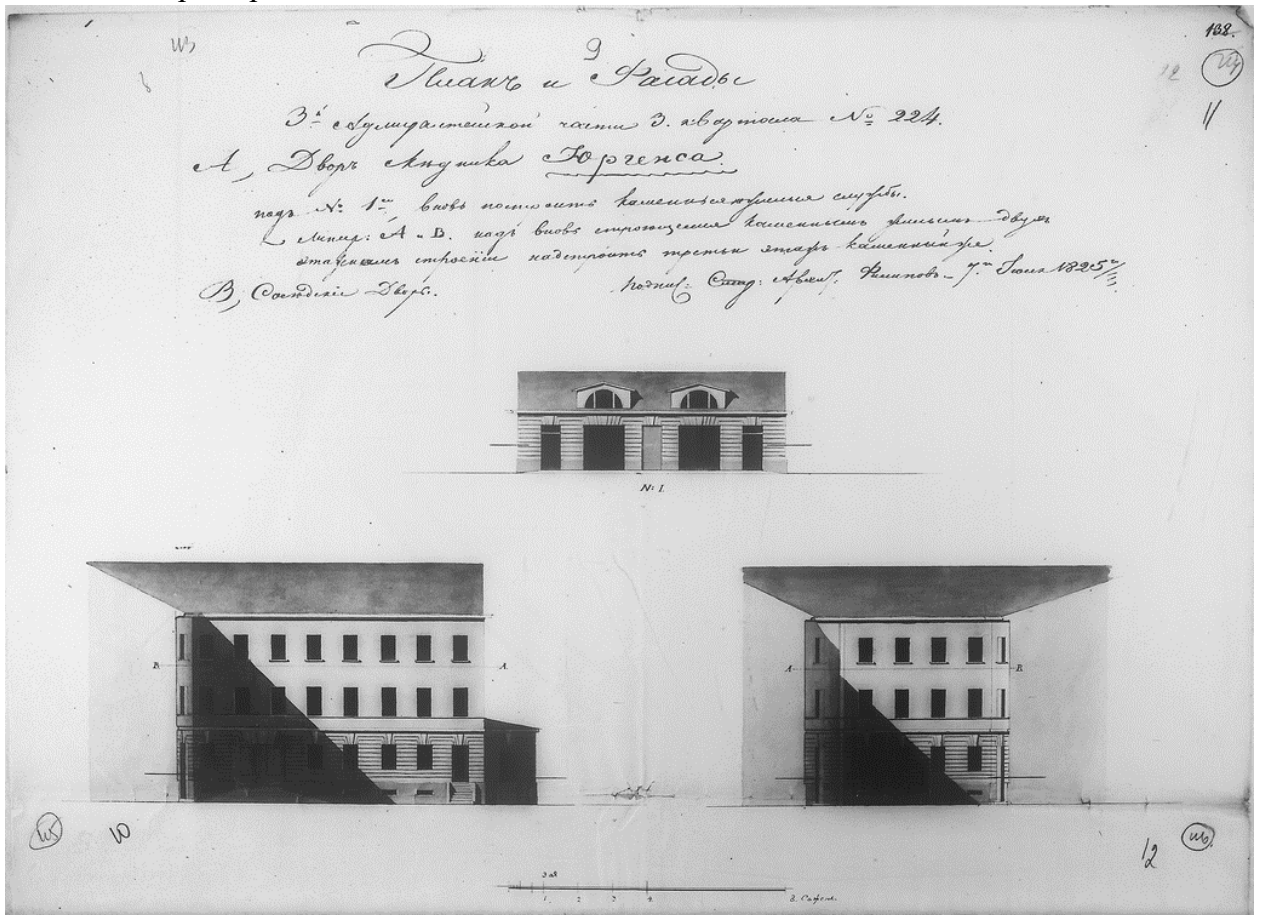 138.
11
Планъ и Фасады
3й Адмиралтейской части 3. квартала № 224.
А, Дворъ Медника Юргенса.
подъ № 1м, вновь построить каменныя жилыя службы.
Литер: А. В. надъ вновь строющемся каменнымъ жилымъ двухъ
этажномъ строенiи надстроить третьи этажъ каменный же.
В, Соседскiе Дворы.
подпис: Архит. Филиповъ. 7го Iюля 1825го
№ 1.
В. А.
А. В.
10
12
1 2 3 4 8. Сажен.